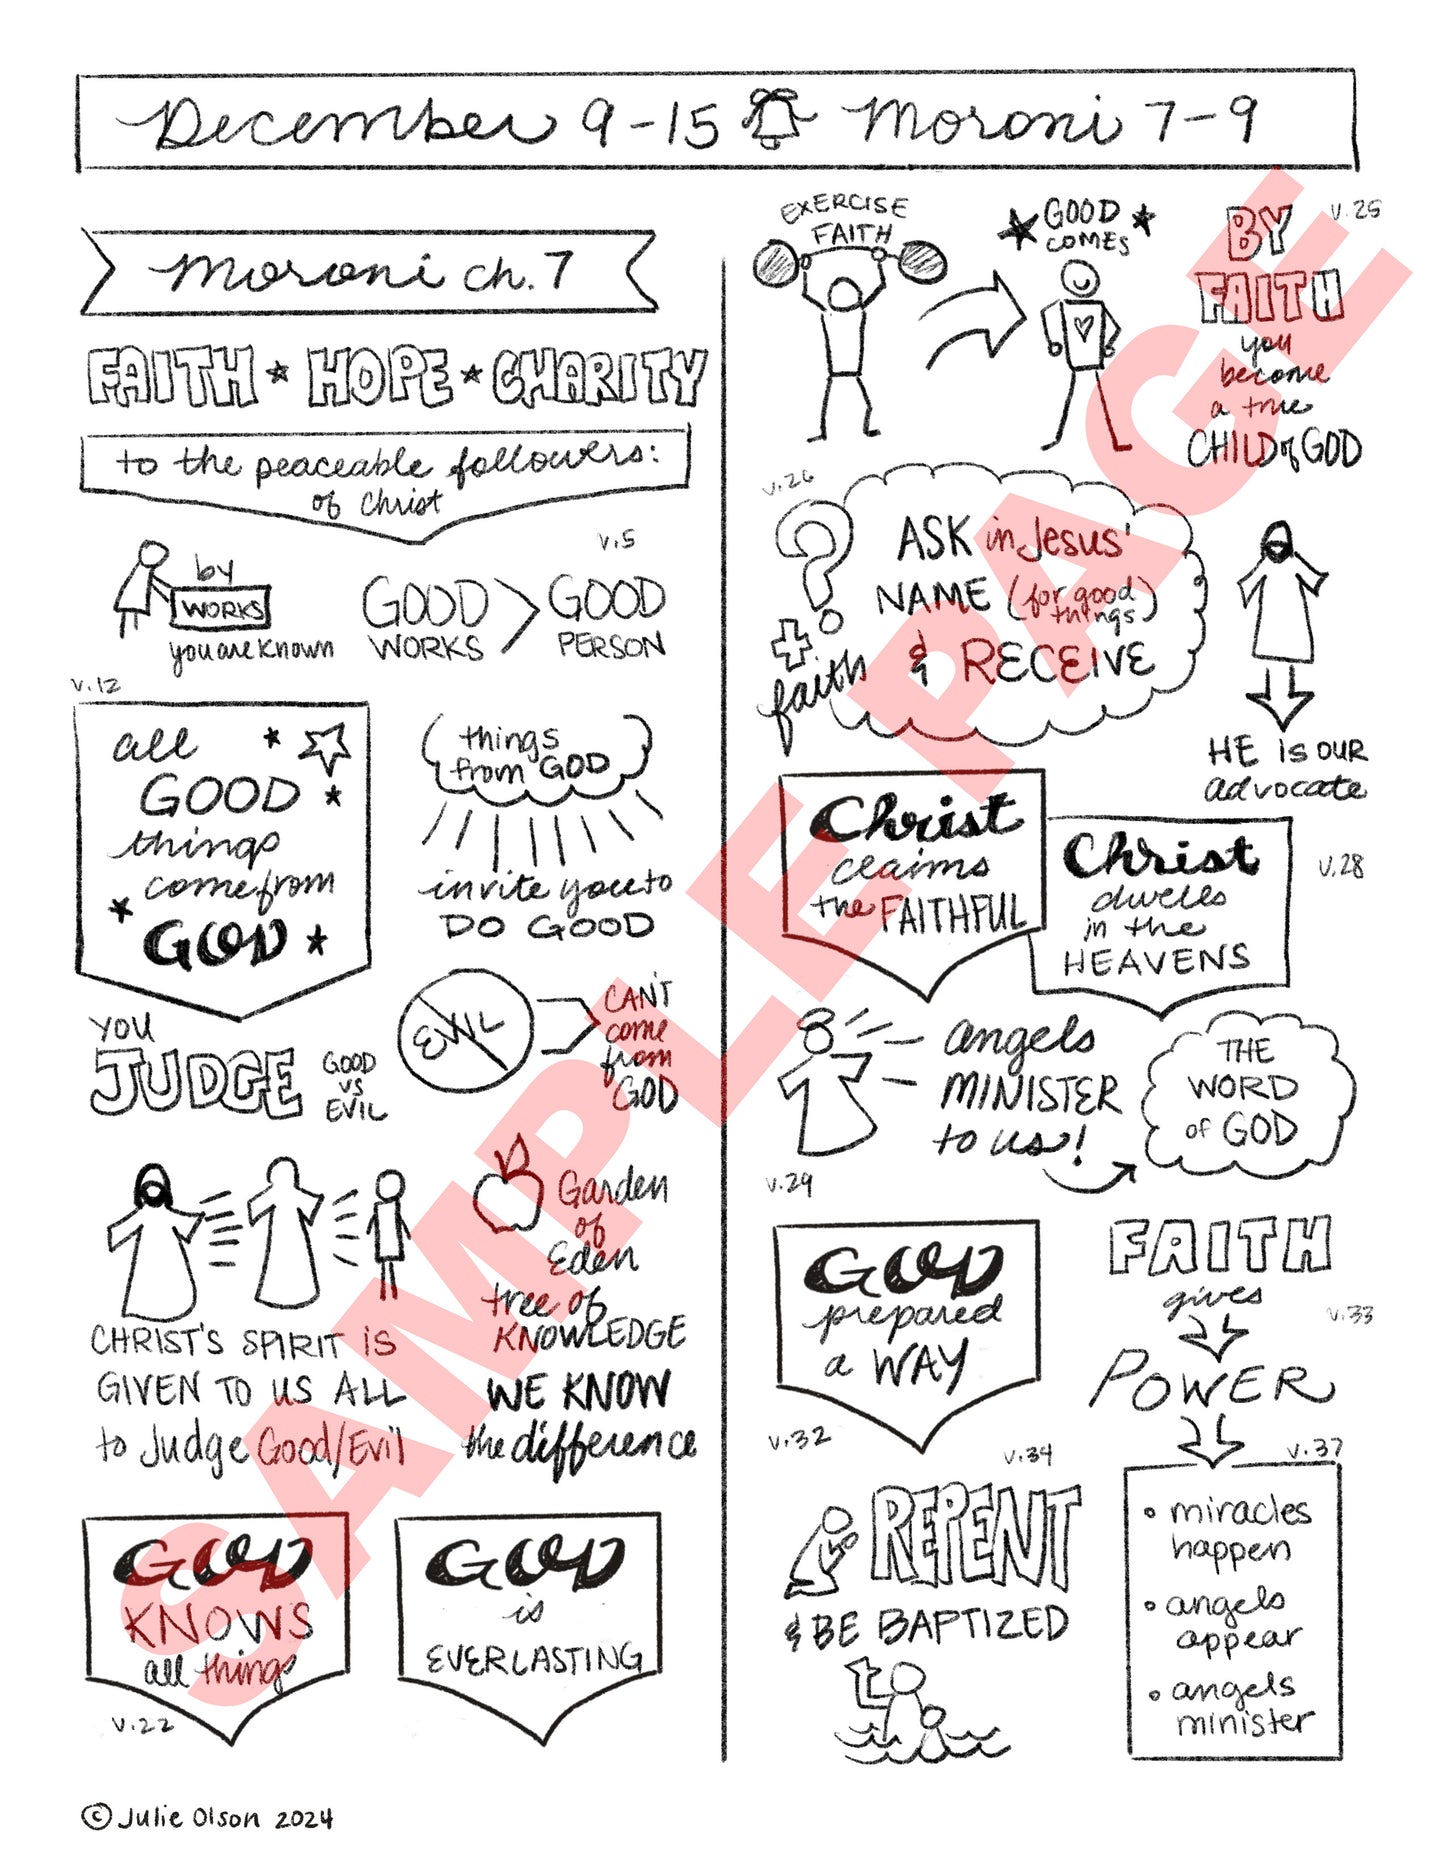 December 9-15 Moroni 7-9
Moroni ch. 7
FAITH ★ HOPE ★ CHARITY
to the peaceable followers:
of Christ
v.5
by
WORKS
you are known
GOOD > GOOD
WORKS PERSON
v.12
all
GOOD
things
come from
GOD
things
from GOD
invite you to
DO GOOD
YOU
JUDGE
GOOD
VS
EVIL
EVIL
CAN'T
come
from
GOD
CHRIST'S SPIRIT IS
GIVEN TO US ALL
to Judge Good/Evil
Garden
of
Eden
tree of
KNOWLEDGE
WE KNOW
the difference
GOD
KNOWS
all things
v.22
GOD
is
EVERLASTING
EXERCISE
FAITH
★ GOOD ★
COMES
v.25
BY
FAITH
you
become
a true
CHILD of GOD
v.26
?
+
faith
ASK in Jesus'
NAME (for good
things)
& RECEIVE
HE IS OUR
advocate
Christ
claims
the FAITHFUL
Christ
dwells
in the
HEAVENS
v.28
angels
MINISTER
to us!
THE
WORD
of GOD
v.29
GOD
prepared
a WAY
v.32
FAITH
gives
v.33
POWER
v.34
REPENT
& BE BAPTIZED
v.37
• miracles
happen
• angels
appear
• angels
minister
© Julie Olson 2024
SAMPLE PAGE